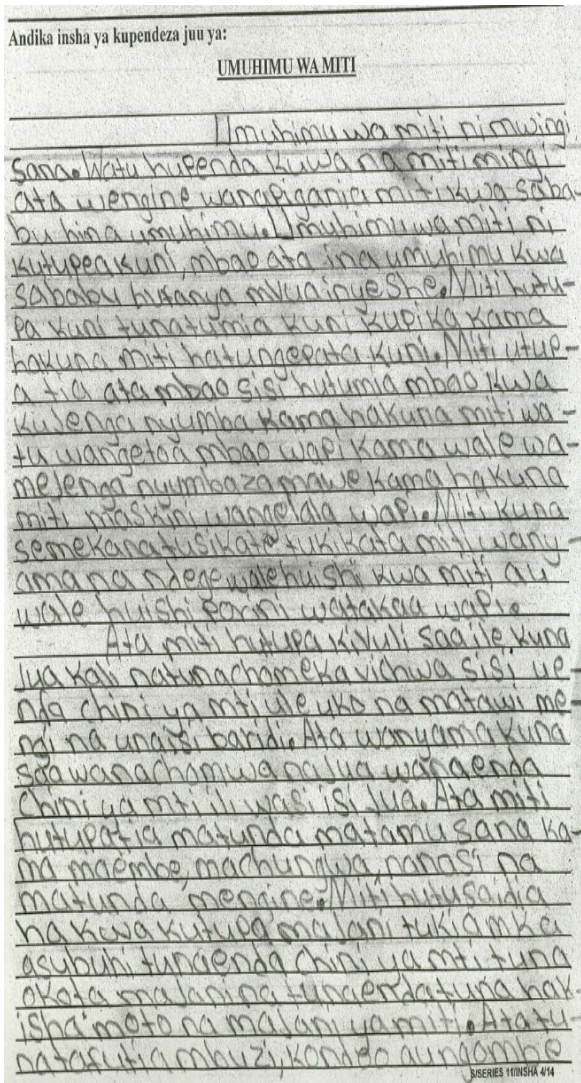 Andika insha ya kupendeza juu ya:
UMUHIMU WA MITI
Umuhimu wa miti ni mwingi
sana. Watu hupenda kuwa na miti mingi
ata wengine wanapigania miti kwa saba
bu hina umuhimu. Umuhimu wa miti ni
kutupea kuni, mbao ata ina umuhimu kwa
sababu hufanya mvua inyeshe. Miti hutu-
pa kuni tunatumia kuni kupika kama
hakuna miti hatungepata kuni. Miti utup-
a tia ata mbao sisi hutumia mbao kwa
kujenga nyumba kama hakuna miti wa-
tu wangetoa mbao wapi kama wale wa-
mejenga nyumba za mawe kama hakuna
miti maskini wangelala wapi. Miti kuna
semekana tusikate tukikata miti wany-
ama na ndege wale huishi kwa miti au
wale huishi porini watakaa wapi.
Ata miti hutupa kivuli saa ile kuna
jua kali na tunachomeka vichwa sisi ue-
nda chini ya mti ule uko na matawi me-
ngi na unatoi baridi. Ata wanyama kuna
saa wanachomwa na jua wanaenda
chini ya mti ili wasisi jua. Ata miti
hutupatia matunda matamu sana ka-
ma maembe, machungwa, nanasi na
matunda mengine. Miti hutusaidia
ha kwa kutupa majani tukiamka
asubuhi tunaenda chini ya mti tuna
okota majani na tunaenda tuna hak-
isha moto na majani ya miti. Ata tu-
natafutia mbuzi, kondoo au ngombe
S/SERIES 11/INSHA 4/14